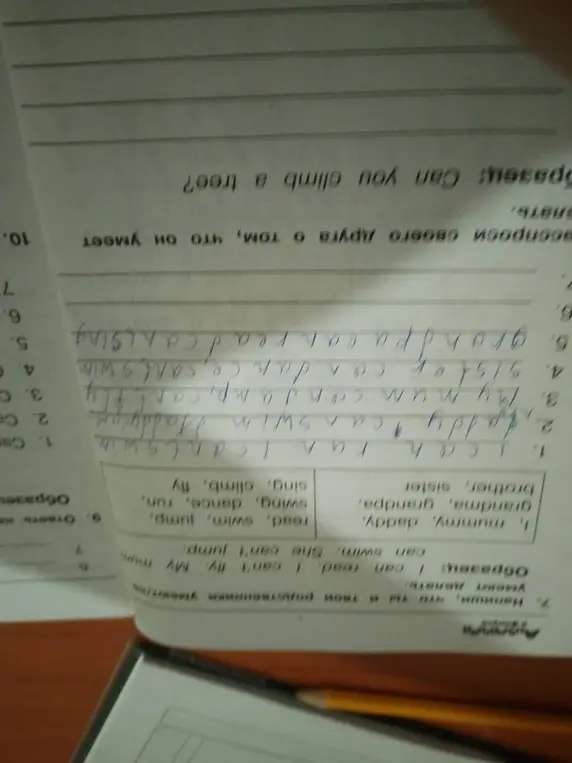 7. Напиши, что ты и твои родственники умеют/не
умеют делать.
Образец: I can read. I can't fly. My mum
can swim. She can't jump.
I, mummy, daddy,
grandma, grandpa,
brother, sister
read, swim, jump,
swing, dance, run,
sing, climb, fly
1. I can run I can't swim
2. daddy can swim daddy can
3. My mum can jump, can't fly
4. sister can dance can't swim
5. grandpa can read can't sing
6.
7.
асспроси своего друга о том, что он умеет
елать.
бразец: Can you climb a tree?
6
7
9. Ответь на
Образец
1. Can
2. Ca
3. C
4.
5.
6.
7
10.